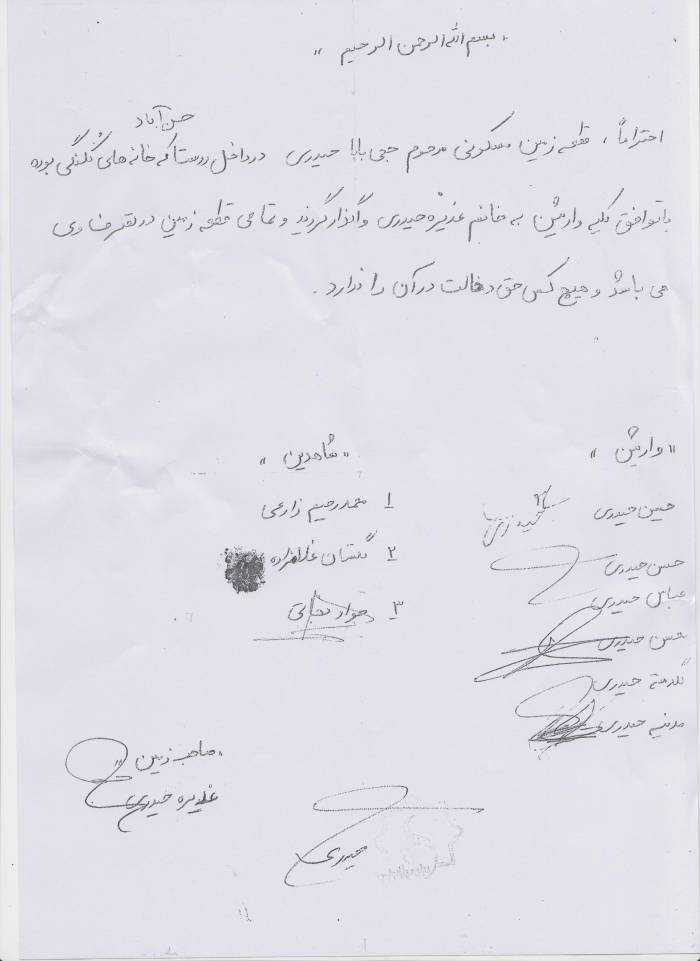 " بسم الله الرحمن الرحیم "
حسن آباد
احتراماً ، قطعه زمین مسکونی مرحوم حجی بابا حیدری در داخل روستا که خانه های کُلنگی بوده
با توافق کلیه وارثین به خانم غدیره حیدری واگذار گردید و تمامی قطعه زمین در تصرف وی
می باشد و هیچ کس حق دخالت در آن را ندارد .
" وارثین "
حسین حیدری
حسن حیدری
عباس حیدری
محسن حیدری
گلدسته حیدری
مدینه حیدری
" شاهدین "
۱ محمد رحیم زارعی
۲ گلستان غلامزاده
۳ جواد
" صاحب زمین "
غدیره حیدری
حیدری